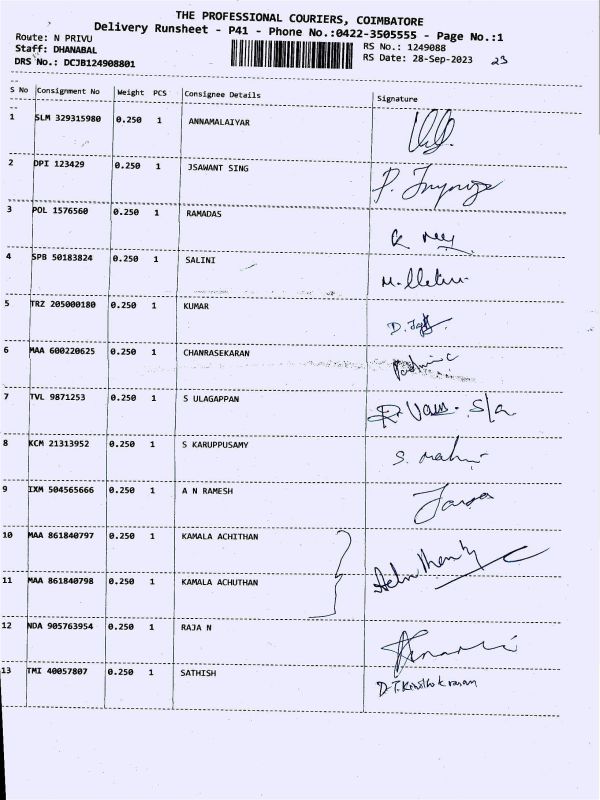 THE PROFESSIONAL COURIERS, COIMBATORE
Delivery Runsheet - P41 - Phone No.:0422-3505555 - Page No.:1
Route: N PRIVU
RS No.: 1249088
Staff: DHANABAL
RS Date: 28-Sep-2023 23
DRS No.: DCJB124908801
S No Consignment No Weight PCS Consignee Details Signature
1 SLM 329315980 0.250 1 ANNAMALAIYAR
2 DPI 123429 0.250 1 JSAWANT SING
3 POL 1576560 0.250 1 RAMADAS
4 SPB 50183824 0.250 1 SALINI
5 TRZ 205000180 0.250 1 KUMAR
6 MAA 600220625 0.250 1 CHANRASEKARAN
7 TVL 9871253 0.250 1 S ULAGAPPAN
8 KCM 21313952 0.250 1 S KARUPPUSAMY
9 IXM 504565666 0.250 1 A N RAMESH
10 MAA 861840797 0.250 1 KAMALA ACHITHAN
11 MAA 861840798 0.250 1 KAMALA ACHUTHAN
12 NDA 905763954 0.250 1 RAJA N
13 TMI 40057807 0.250 1 SATHISH